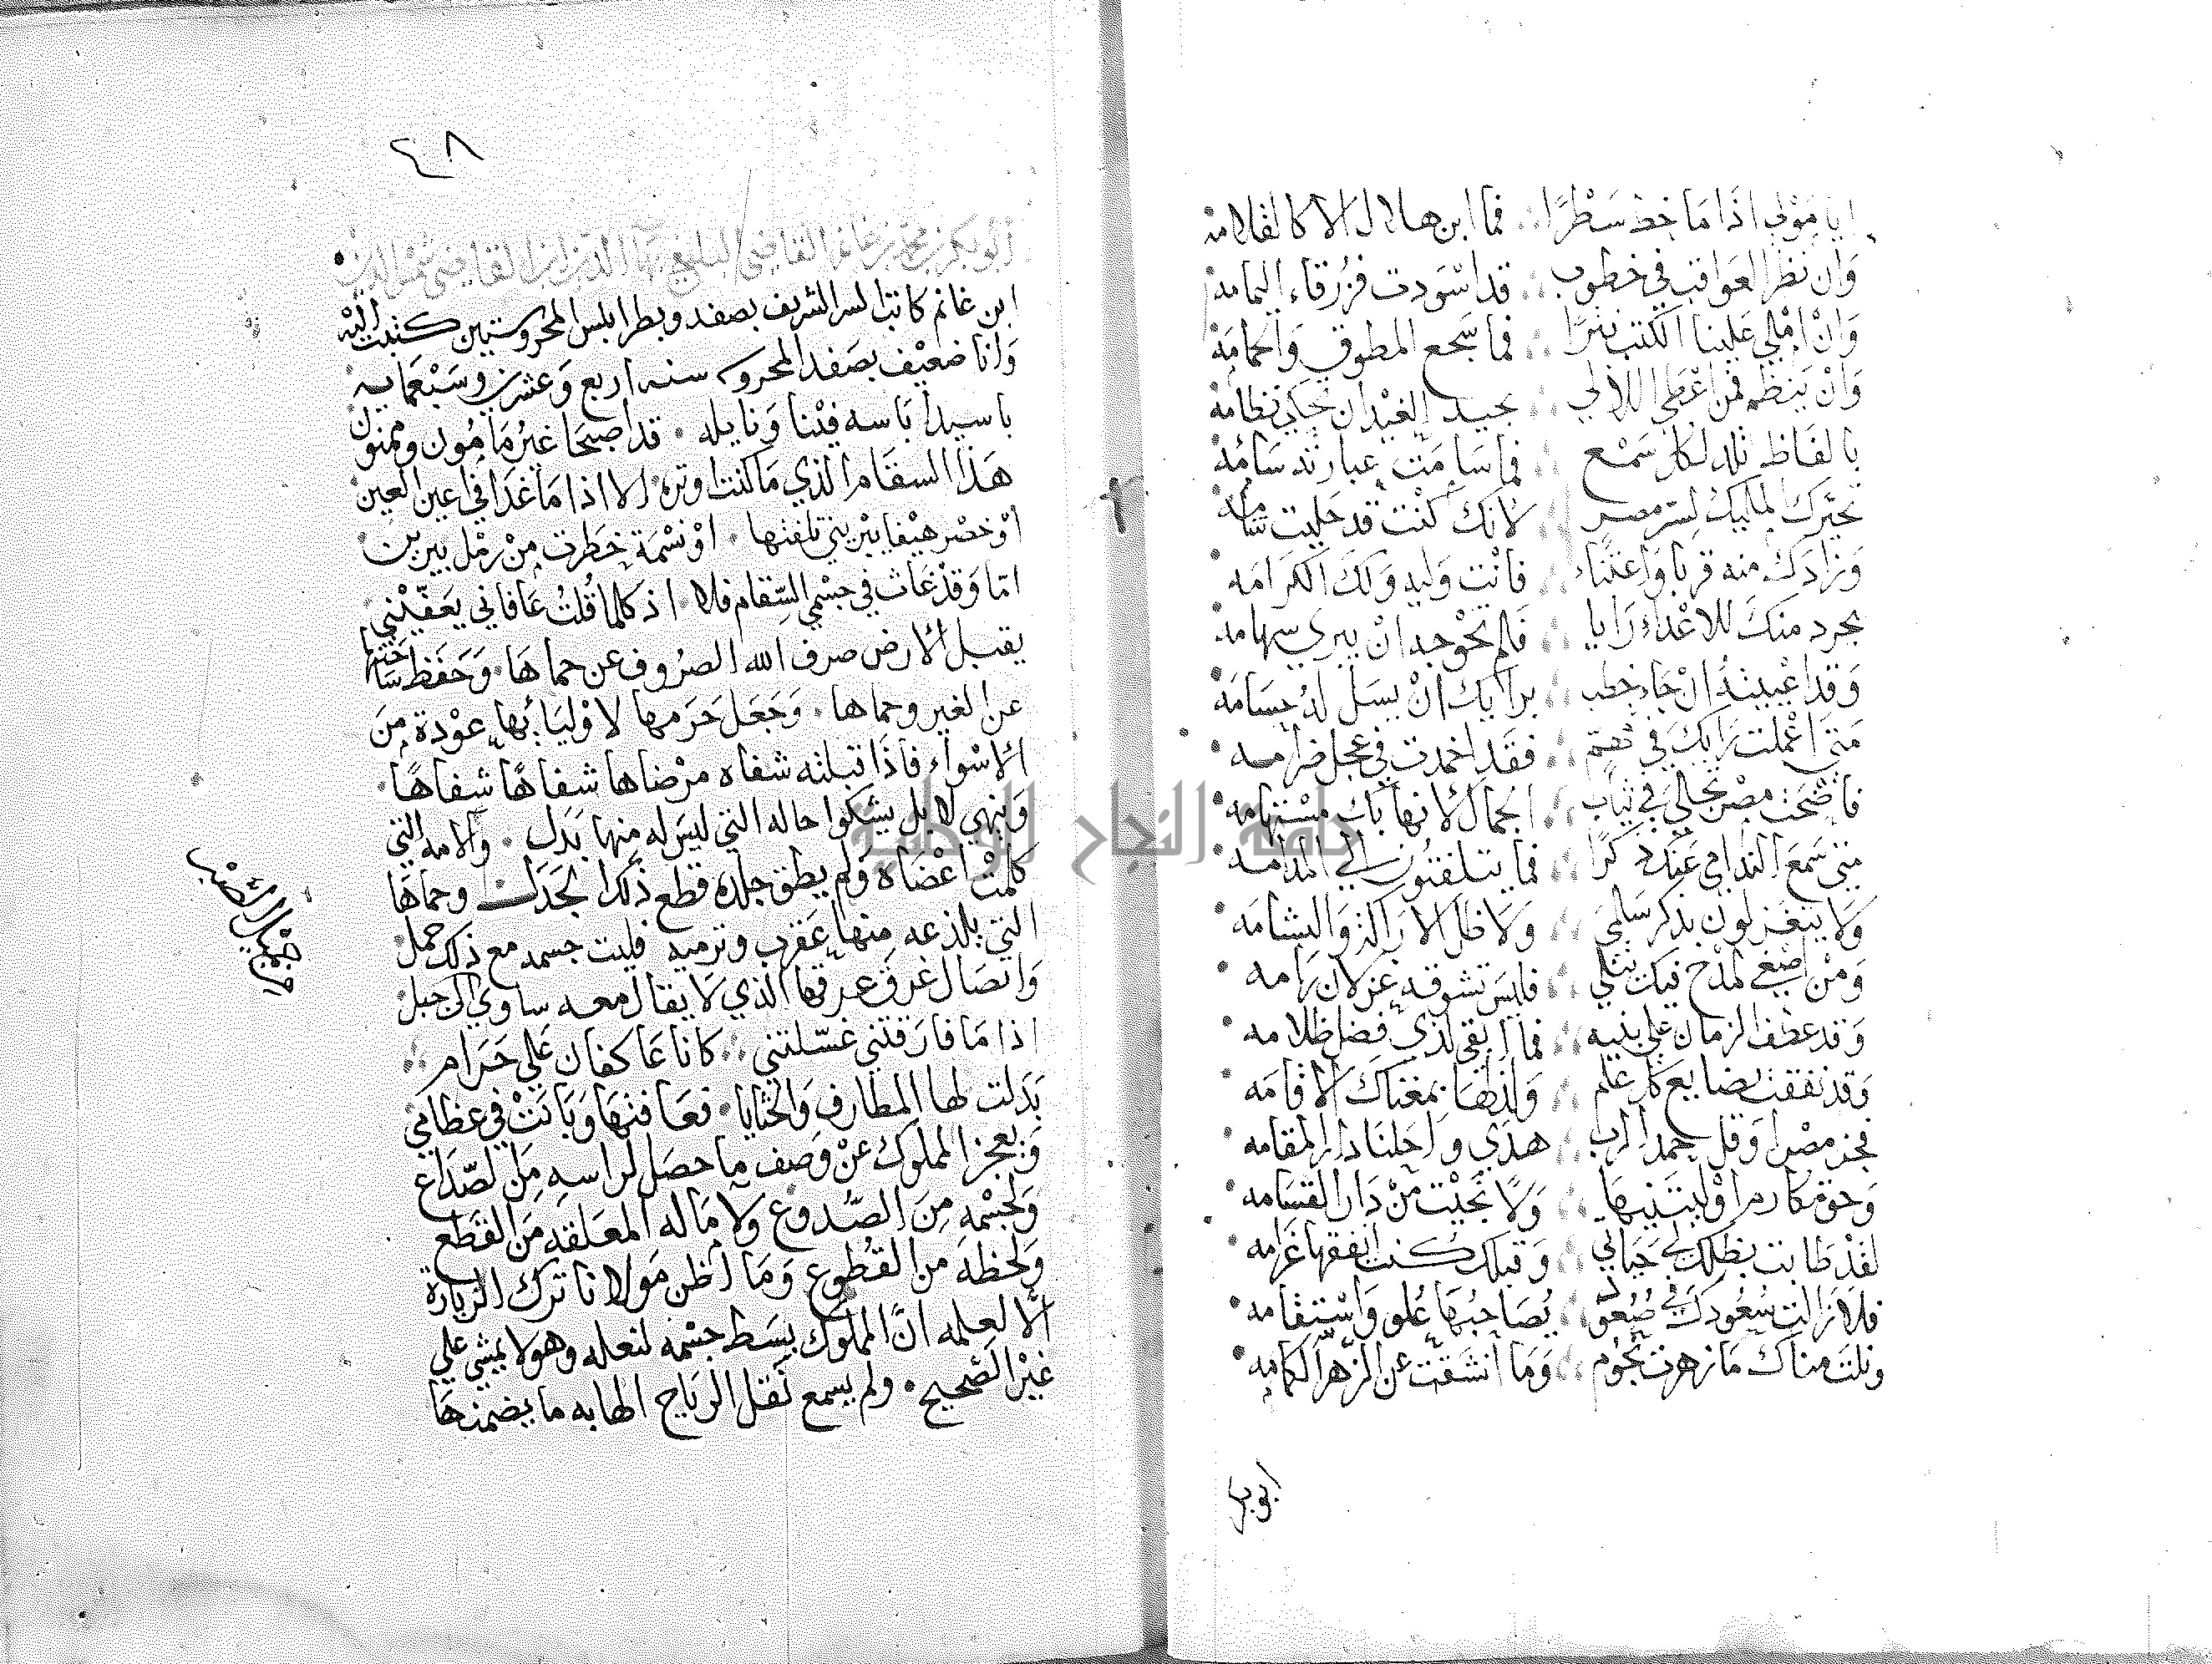 ايا مولى اذا ما خط سطرًا فما ابن هلال الا كالقلامه
وان نظر العواقب في خطوب قد اسودت فزرقاء اليمامه
وان املى علينا الكتب نثرًا فما سجع المطوق والحمامه
وان ينظم فمن اعطى اللآلي بجيد الغيد ان تحكي نظامه
بالفاظ تلذ لكل سمع فما سامت عبارته سامه
تخيرك المليك لسر مصر لانك كنت قد حليت شامه
وزادك منه قربا واعتناء فانت وليه ولك الكرامه
يجرد منك للاعداء رايا فلم تحوجه ان يبري سهامه
وقد اغنيته ان جاء خطب برايك ان يسل له حسامه
متى اعملت رايك في مهم فقد اخمدت في عجل ضرامه
فاضحت مصر تجلى في ثياب الجمال لانها بك مستهامه
متى سمع الندامى عنك ذكرًا فما يتلفتون الى المدامه
ولا يتغزلون بذكر سلمى ولا ظل الاراكة والبشامه
ومن اصغى لمدح فيك يتلى فليس تشوقه غزلان رامه
وقد عطف الزمان على بنيه فما ابقى لذي فضل ظلامه
وقد نفقت بضايع كل علم ولذ لها بمغناك الاقامه
فجز مصرا وقل حمدا لرب هدى واحلنا دار المقامه
وحق مكارم اوليتنيها ولا نجيت من دار القسامه
لقد طابت بظلك لي حياتي وقبلك كنت انفقها غرامه
فلا زالت سعودك في صعود يصاحبها علو واستقامه
ونلت مناك ما زهرت نجوم وما انشقت عن الزهر الكمامه
ابو بكر
٤٨
ابو بكر بن محمد بن غانم القاضي البليغ بهاء الدين ابن القاضي شمس الدين
ابن غانم كاتب السر الشريف بصفد وبطرابلس المحروستين كتبت اليه
وانا ضعيف بصفد المحروسه سنه اربع وعشرين وسبعمايه
يا سيدا باسه فينا ونايله قد اصبحا غير مامون وممنون
هذا السقام الذي ما كنت اوثره الا اذا ما غدا في اعين العين
او خصر هيفا يبريني تلفتها او نسمة خطرت من رمل يبرين
اما وقد عاث في جسمي السقام فلا اذ كلما قلت عافاني يعفيني
يقبل الارض صرف الله الصروف عن حماها وحفظ ساحتها
عن الغير وحماها وجعل حرمها لاوليائها عوذة من
الاسواء فاذا قبلته شفاه مرضاها شفاها شفاها
وينهي لا بل يشكوا حاله التي ليس له منها بدل والامه التي
كلمت اعضاه ولم يطق جلده قطع ذلك الجدل وحماها
التي يلذعه منها عقرب وترميه فليت جسمه مع ذلك حمل
واتصال غرق عرقها الذي لا يقال معه ساوي الى جبل
اذا ما فارقتني غسلتني كانا عاكفان على حرام
بذلت لها المطارف والحشايا فعافتها وباتت في عظامي
ويعجز المملوك عن وصف ما حصل لراسه من الصداع
ولجسمه من الصدوع ولاماله المعلقه من القطع
ولحظه من القطوع وما اظن مولانا ترك الزيارة
الا لعلمه ان المملوك بسط جسمه لنعله وهو لا يمشي على
غير الصحيح ولم يسمع نقل الرياح الهابه ما يضمنها